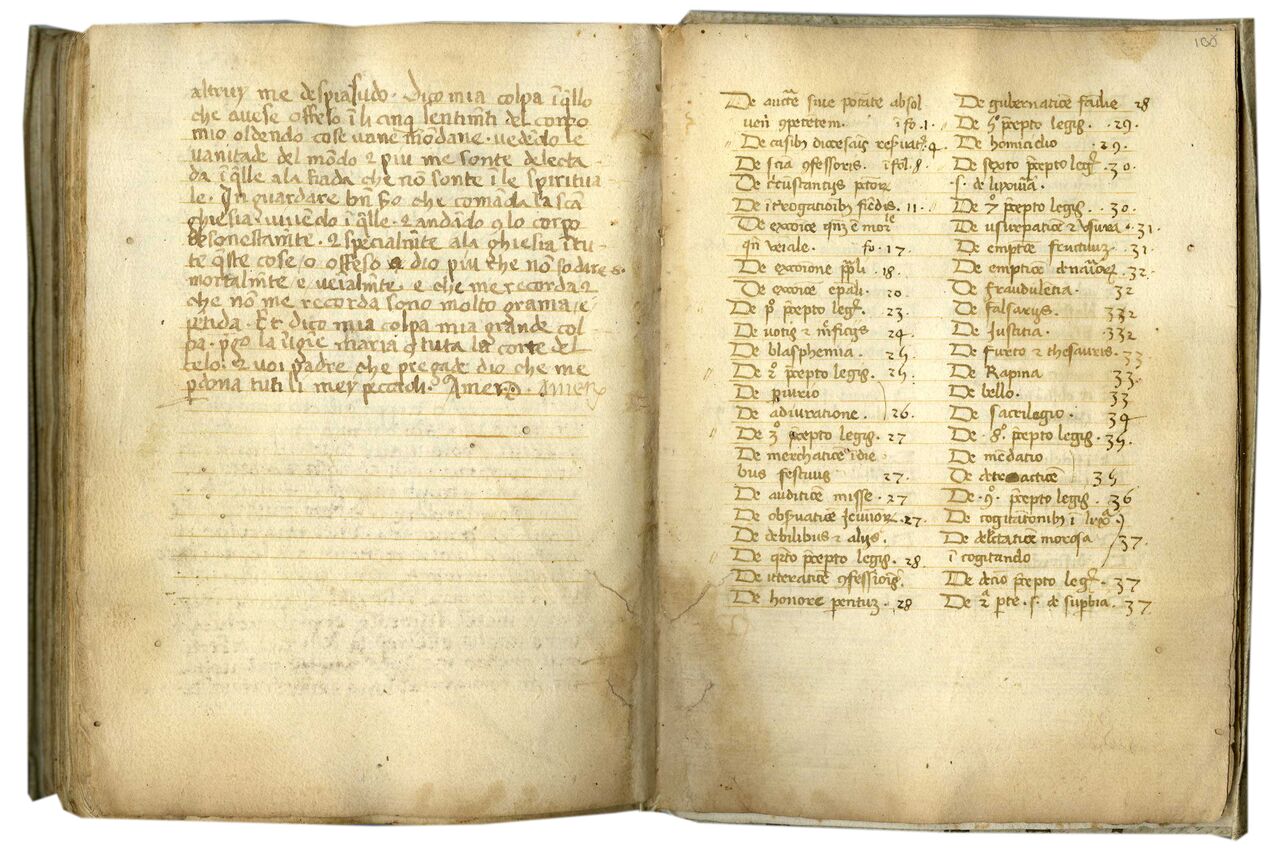 altruy me despiasudo. Dico mia colpa i q̃llo
che avese offeso i li cinq sentimti del corpo
mio oldendo cose vane mõdane. vedẽdo le
vanitade del mõdo & piu me sonte delecta
da i q̃lle a la fiada che nõ sonte i le spiritua
le. In guardare che comãda la scã
ghiesia vivẽdo i q̃lle. & andãdo lo corpo
desonestamte. & specialmte a la ghiesia i tu
te q̃ste cose o offeso a dio piu che nõ so dire
mortalmte e veialmte e che me recorda &
che nõ me recorda sono molto grama e
petida. Et dico mia colpa mia grande col
pa. p̃go la v̄gie maria 9 tuta la corte del
celo. & voi padre che pregade dio che me
pdona tuti li mey peccadi. Amen. Amen
155
De auctẽ sive potãte absol
vẽn 9petetem. i fo. 1.
De casib diocesais res̃vat. 4
De scia 9fessoris. i fol. 8
De circũstantijs p̃tor
De itrogatioib fiẽdis. 11.
De excõice q̃ñ ẽ mor le
q̃ñ veiale. fo. 17.
De excõione 18.
De excõice 20.
De pº p̃cepto leg. 23.
De votis & 24.
De blasphemia. 25.
De 2º p̃cepto legis. 25.
De piurio
De adiuratione. 26.
De 3º p̃cepto legis. 27
De merchatice i die
bus festivis 27.
De auditice misse. 27
De obs̃vatice Jeiuior. 27.
De debilibus & alijs.
De q̃rto p̃cepto legis. 28
De iteratice 9fessiõis.
De honore pentuz. 28
De gubernatice faiẽlie 28
De 5º p̃cepto legis. 29.
De homicidio 29.
De sexto p̃cepto leg. 30.
.s. de lixoria.
De 7º p̃cepto legis. 30.
De usurpatice & usura. 31.
De emptice fructuuz. 31.
De emptice 32.
De fraudulẽcia. 32
De falsarijs. 332
De Justitia. 332
De furto & thesauris. 33
De Rapina 33.
De bello. 33
De sacrilegio. 34
De. 8º. p̃cepto legis. 35.
De mẽdatio
De detractice 35
De. 9º. p̃cepto legis 36
De cogitationib i
De delectatice morosa 37.
i cogitando
De decio p̃cepto leg. 37
De 2ª pte. s. de supbia. 37